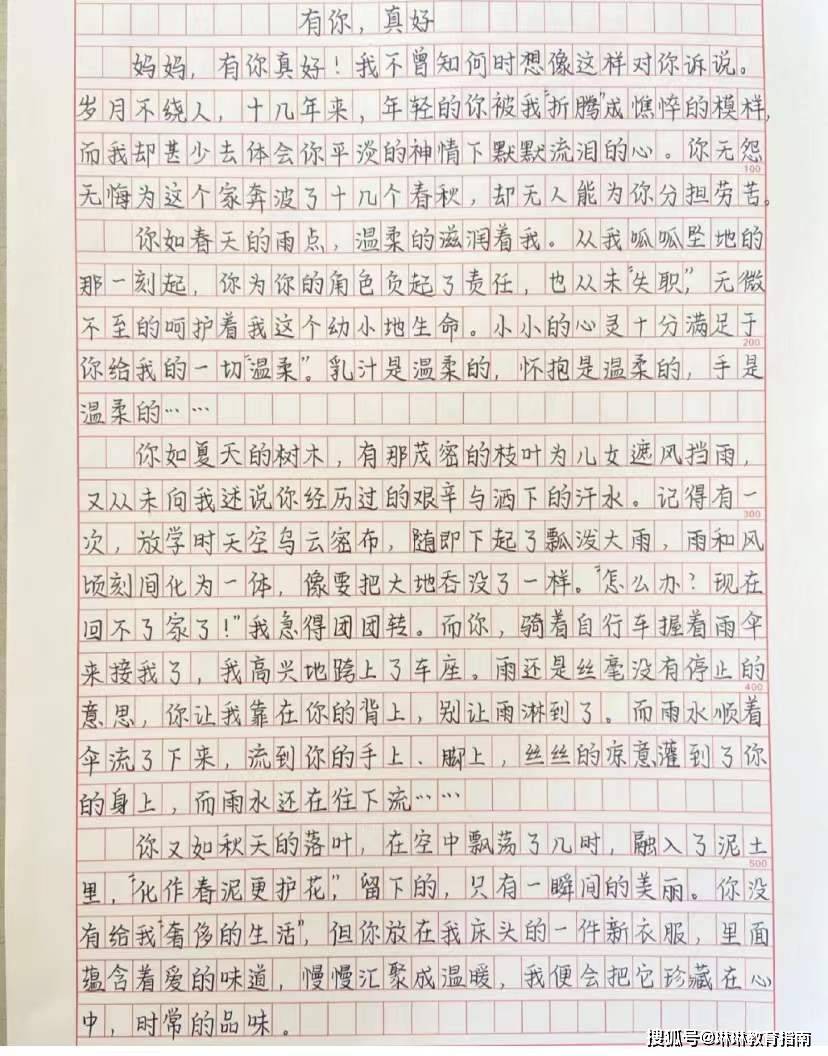 有你，真好
妈妈，有你真好！我不曾知何时想像这样对你诉说。
岁月不绕人，十几年来，年轻的你被我“折腾”成憔悴的模样，
而我却甚少去体会你平淡的神情下默默流泪的心。你无怨
100
无悔为这个家奔波了十几个春秋，却无人能为你分担劳苦。
你如春天的雨点，温柔的滋润着我。从我呱呱坠地的
那一刻起，你为你的角色负起了责任，也从未“失职”，无微
不至的呵护着我这个幼小地生命。小小的心灵十分满足于
200
你给我的一切“温柔”。乳汁是温柔的，怀抱是温柔的，手是
温柔的……
你如夏天的树木，有那茂密的枝叶为儿女遮风挡雨，
又从未向我述说你经历过的艰辛与洒下的汗水。记得有一
300
次，放学时天空乌云密布，随即下起了瓢泼大雨，雨和风
顷刻间化为一体，像要把大地吞没了一样。“怎么办？现在
回不了家了！”我急得团团转。而你，骑着自行车握着雨伞
来接我了，我高兴地跨上了车座。雨还是丝毫没有停止的
400
意思，你让我靠在你的背上，别让雨淋到了。而雨水顺着
伞流了下来，流到你的手上、脚上，丝丝的凉意灌到了你
的身上，而雨水还在往下流……
你又如秋天的落叶，在空中飘荡了几时，融入了泥土
500
里，“化作春泥更护花”，留下的，只有一瞬间的美丽。你没
有给我“奢侈的生活”，但你放在我床头的一件新衣服，里面
蕴含着爱的味道，慢慢汇聚成温暖，我便会把它珍藏在心
中，时常的品味。
搜狐号@琳琳教育指南